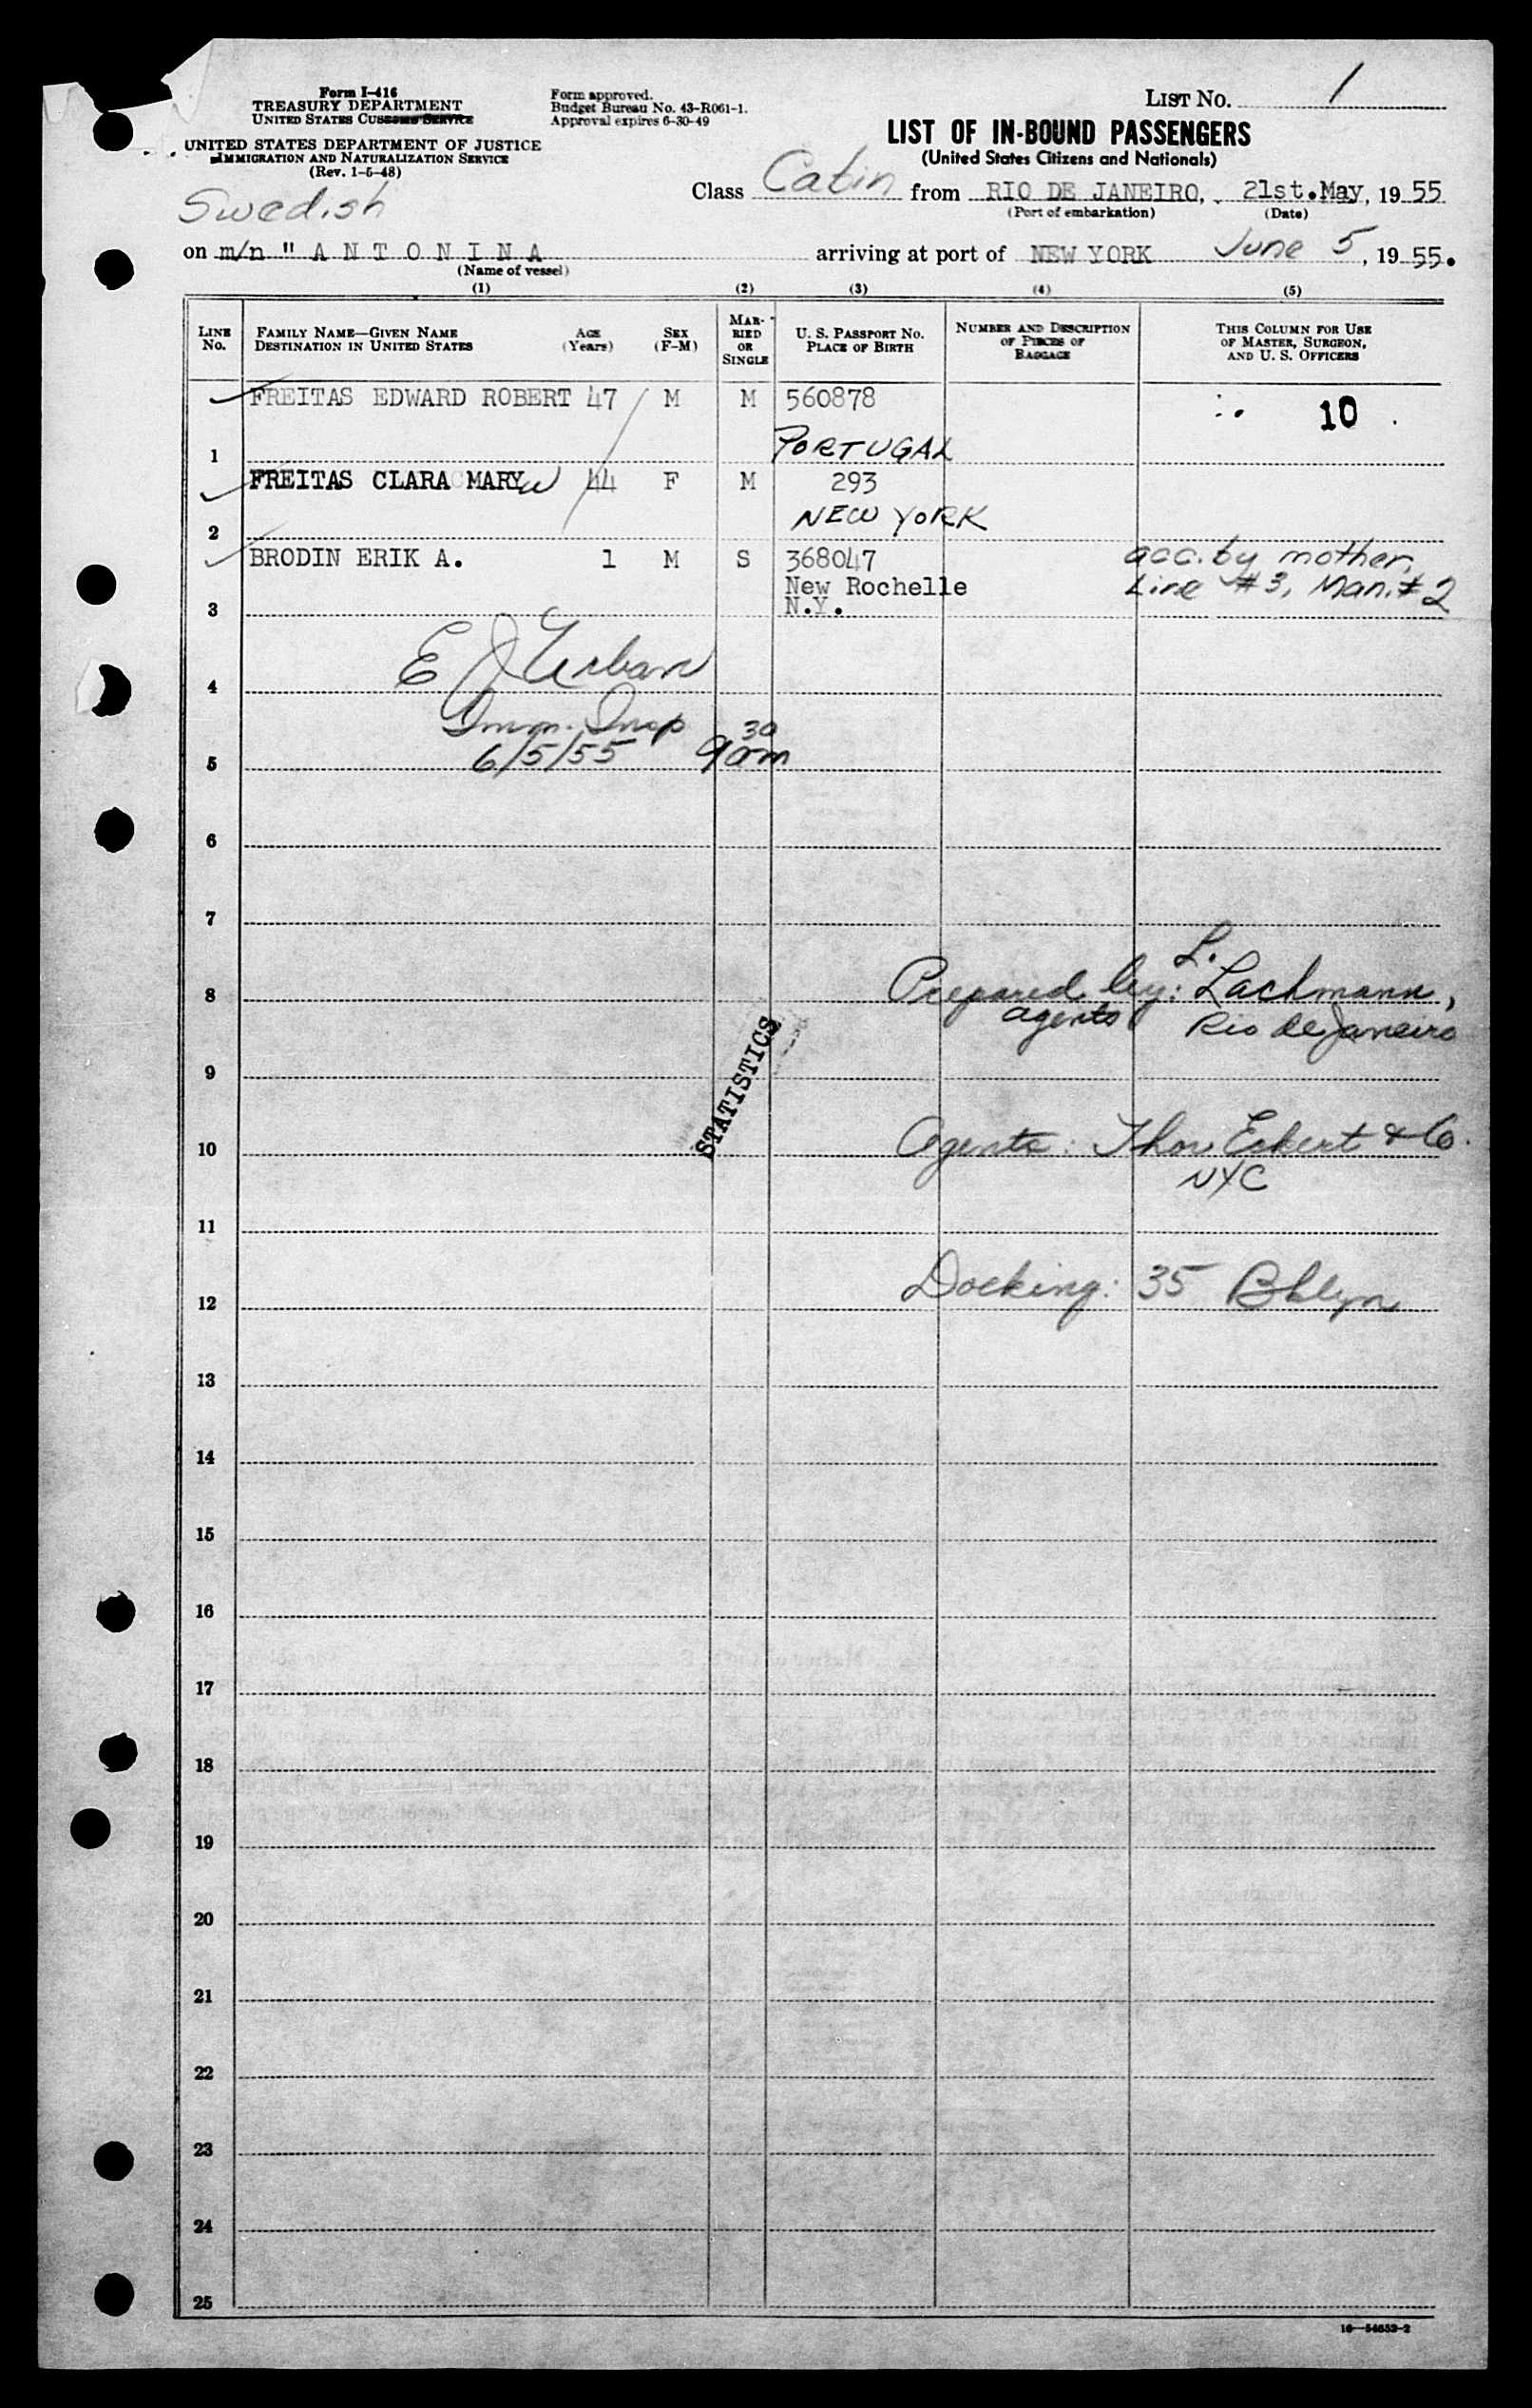 Form I-416
TREASURY DEPARTMENT
UNITED STATES CUSTOMS SERVICE
UNITED STATES DEPARTMENT OF JUSTICE
IMMIGRATION AND NATURALIZATION SERVICE
(Rev. 1-5-48)
Form approved.
Budget Bureau No. 43-R061-1.
Approval expires 6-30-49
LIST NO. 1
LIST OF IN-BOUND PASSENGERS
(United States Citizens and Nationals)
Swedish
Class Cabin from RIO DE JANEIRO, 21st.May, 19 55
(Port of embarkation) (Date)
on m/n " A N T O N I N A arriving at port of NEW YORK June 5, 19 55.
(Name of vessel)
(1) (2) (3) (4) (5)
LINE No. FAMILY NAME—GIVEN NAME DESTINATION IN UNITED STATES AGE (Years) SEX (F-M) MARRIED OR SINGLE U. S. PASSPORT NO. PLACE OF BIRTH NUMBER AND DESCRIPTION OF PIECES OF BAGGAGE THIS COLUMN FOR USE OF MASTER, SURGEON, AND U. S. OFFICERS
FREITAS EDWARD ROBERT 47 M M 560878 10
1 PORTUGAL
FREITAS CLARA MARY W 44 F M 293
2 NEW YORK
BRODIN ERIK A. 1 M S 368047 acc. by mother,
New Rochelle Line #3, Man. #2
3 N.Y.
E J Urban
4
Imm. Insp
6/5/55 9 30 am
5
6
7
L.
8 Prepared by: Lachmann,
agents Rio de Janeiro
9
STATISTICS
10 Agents: Thor Eckert & Co.
NYC
11
12 Docking: 35 Bklyn
13
14
15
16
17
18
19
20
21
22
23
24
25
16—54652-2